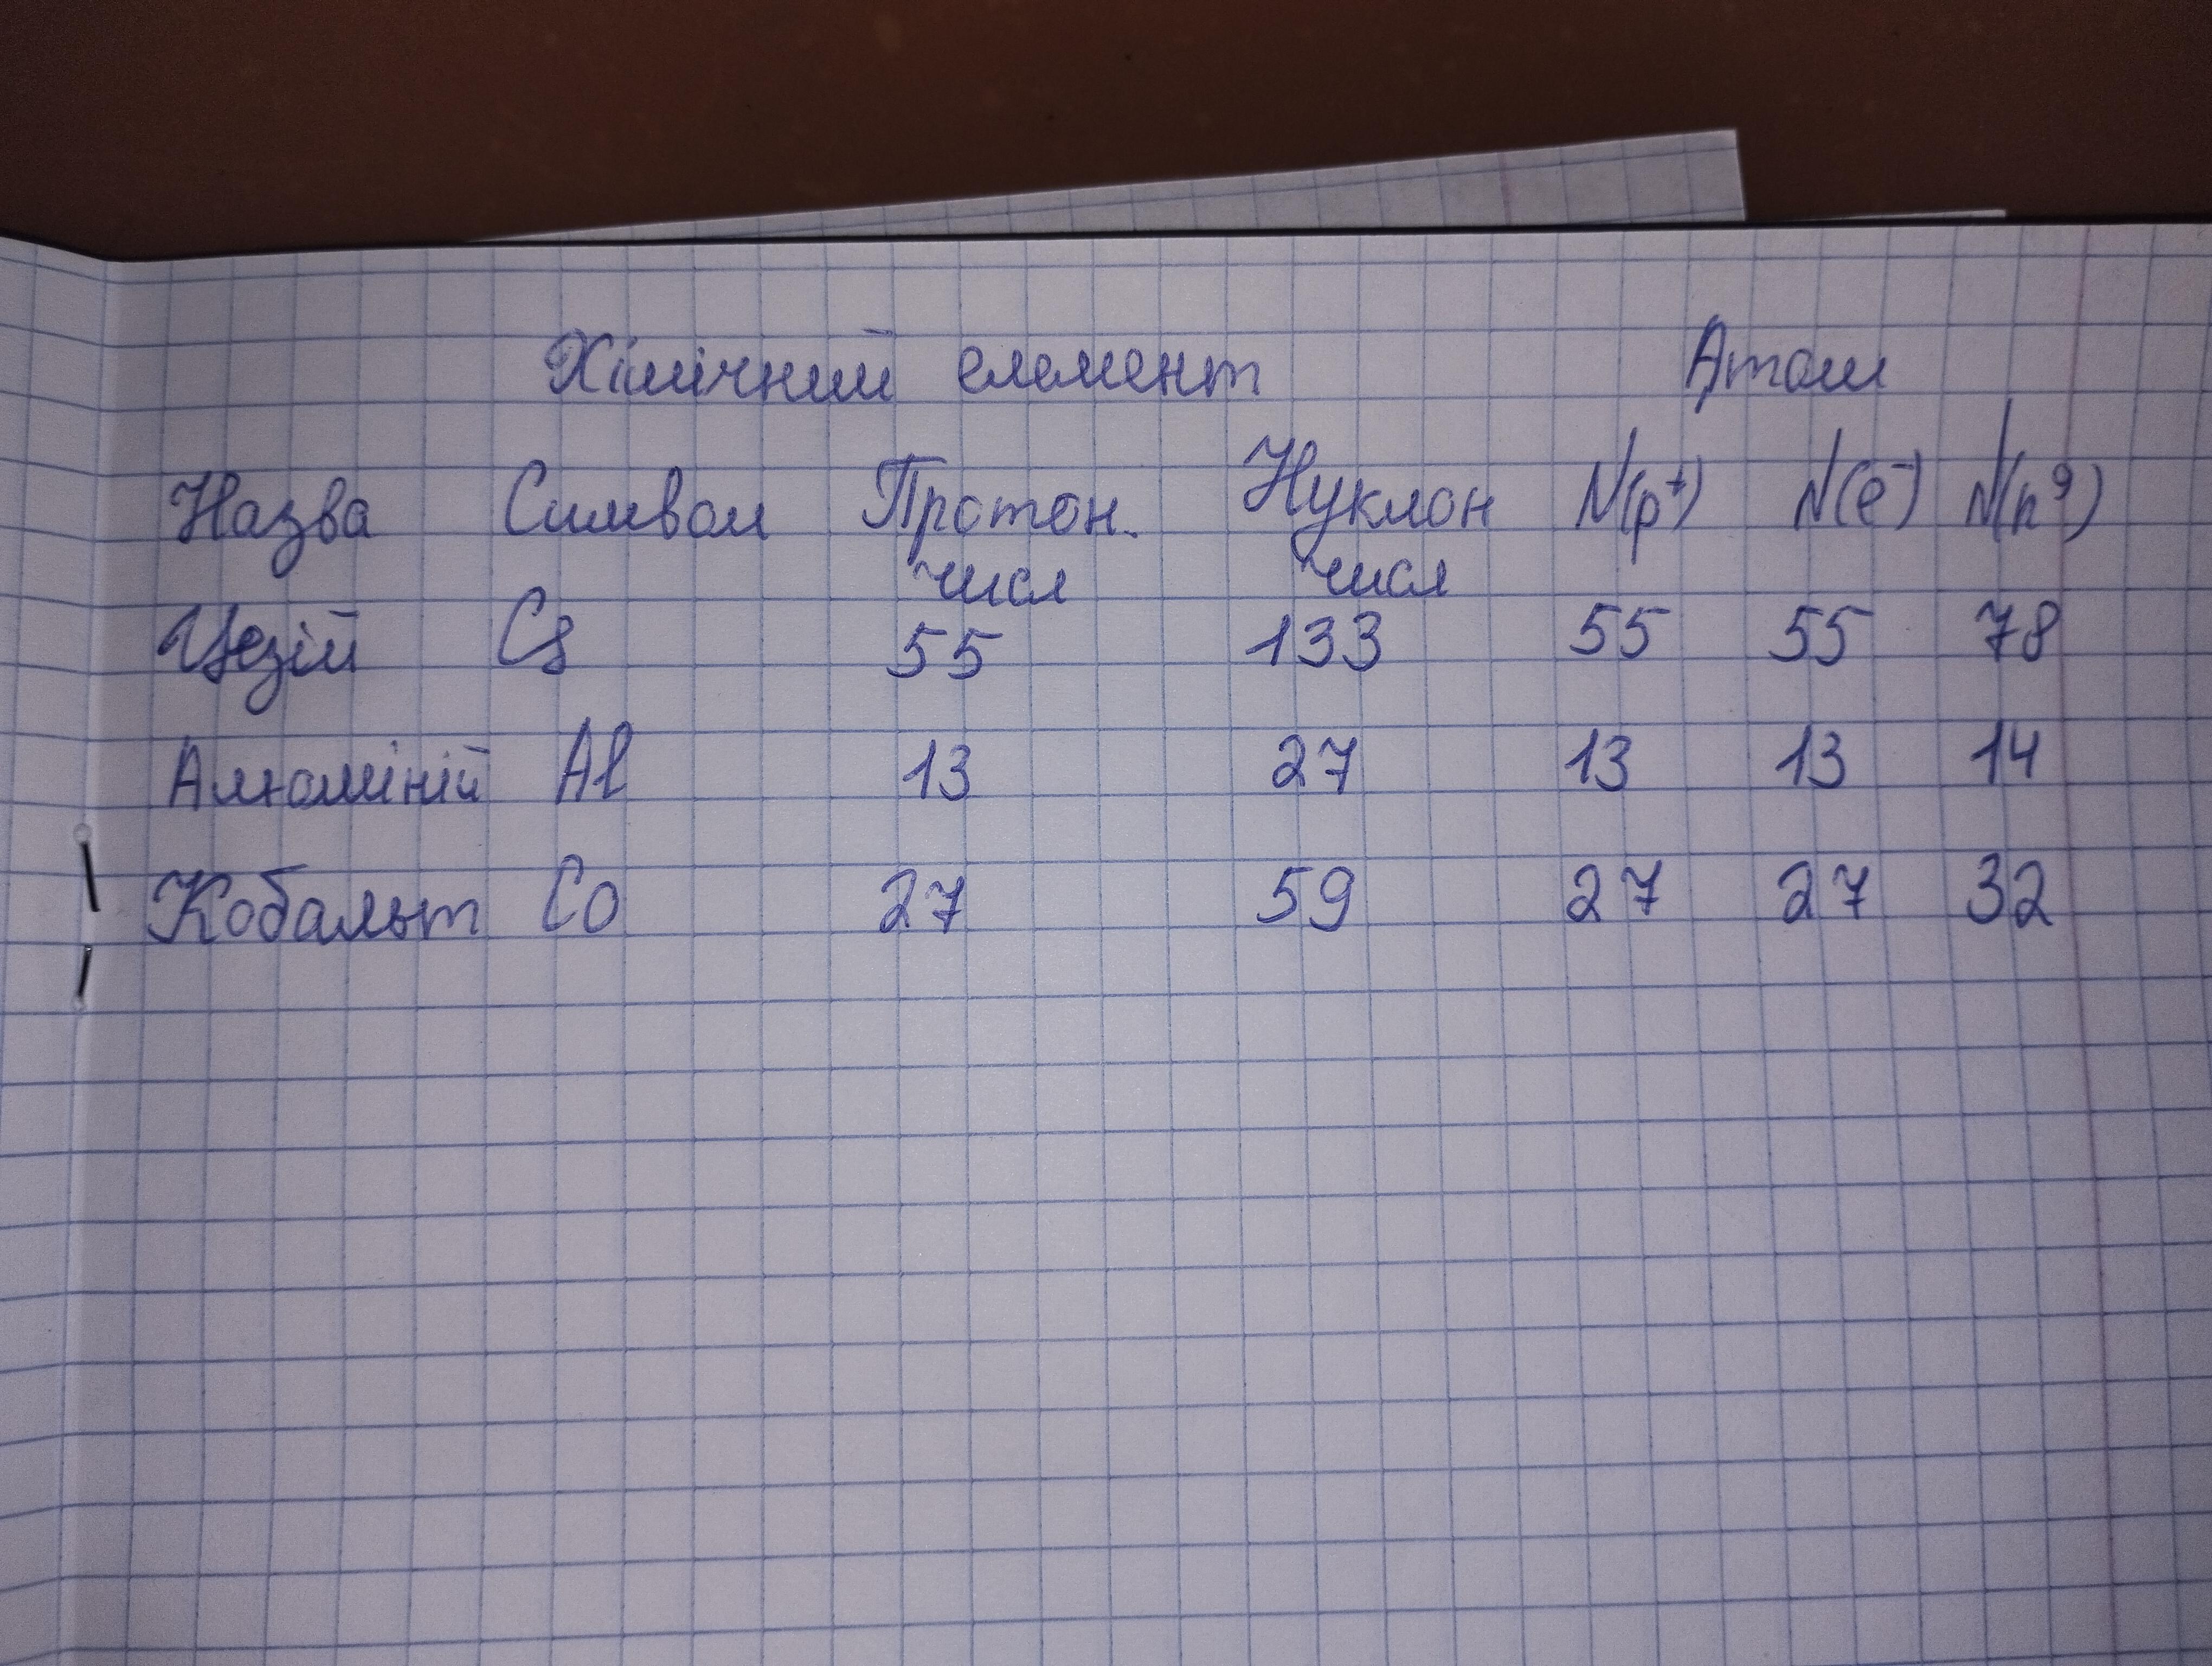 Хімічний елемент Атом
Назва Символ Протон. Нуклон N(p⁺) N(e⁻) N(n⁰)
числ числ
Цезій Cs 55 133 55 55 78
Алюміній Al 13 27 13 13 14
Кобальт Co 27 59 27 27 32